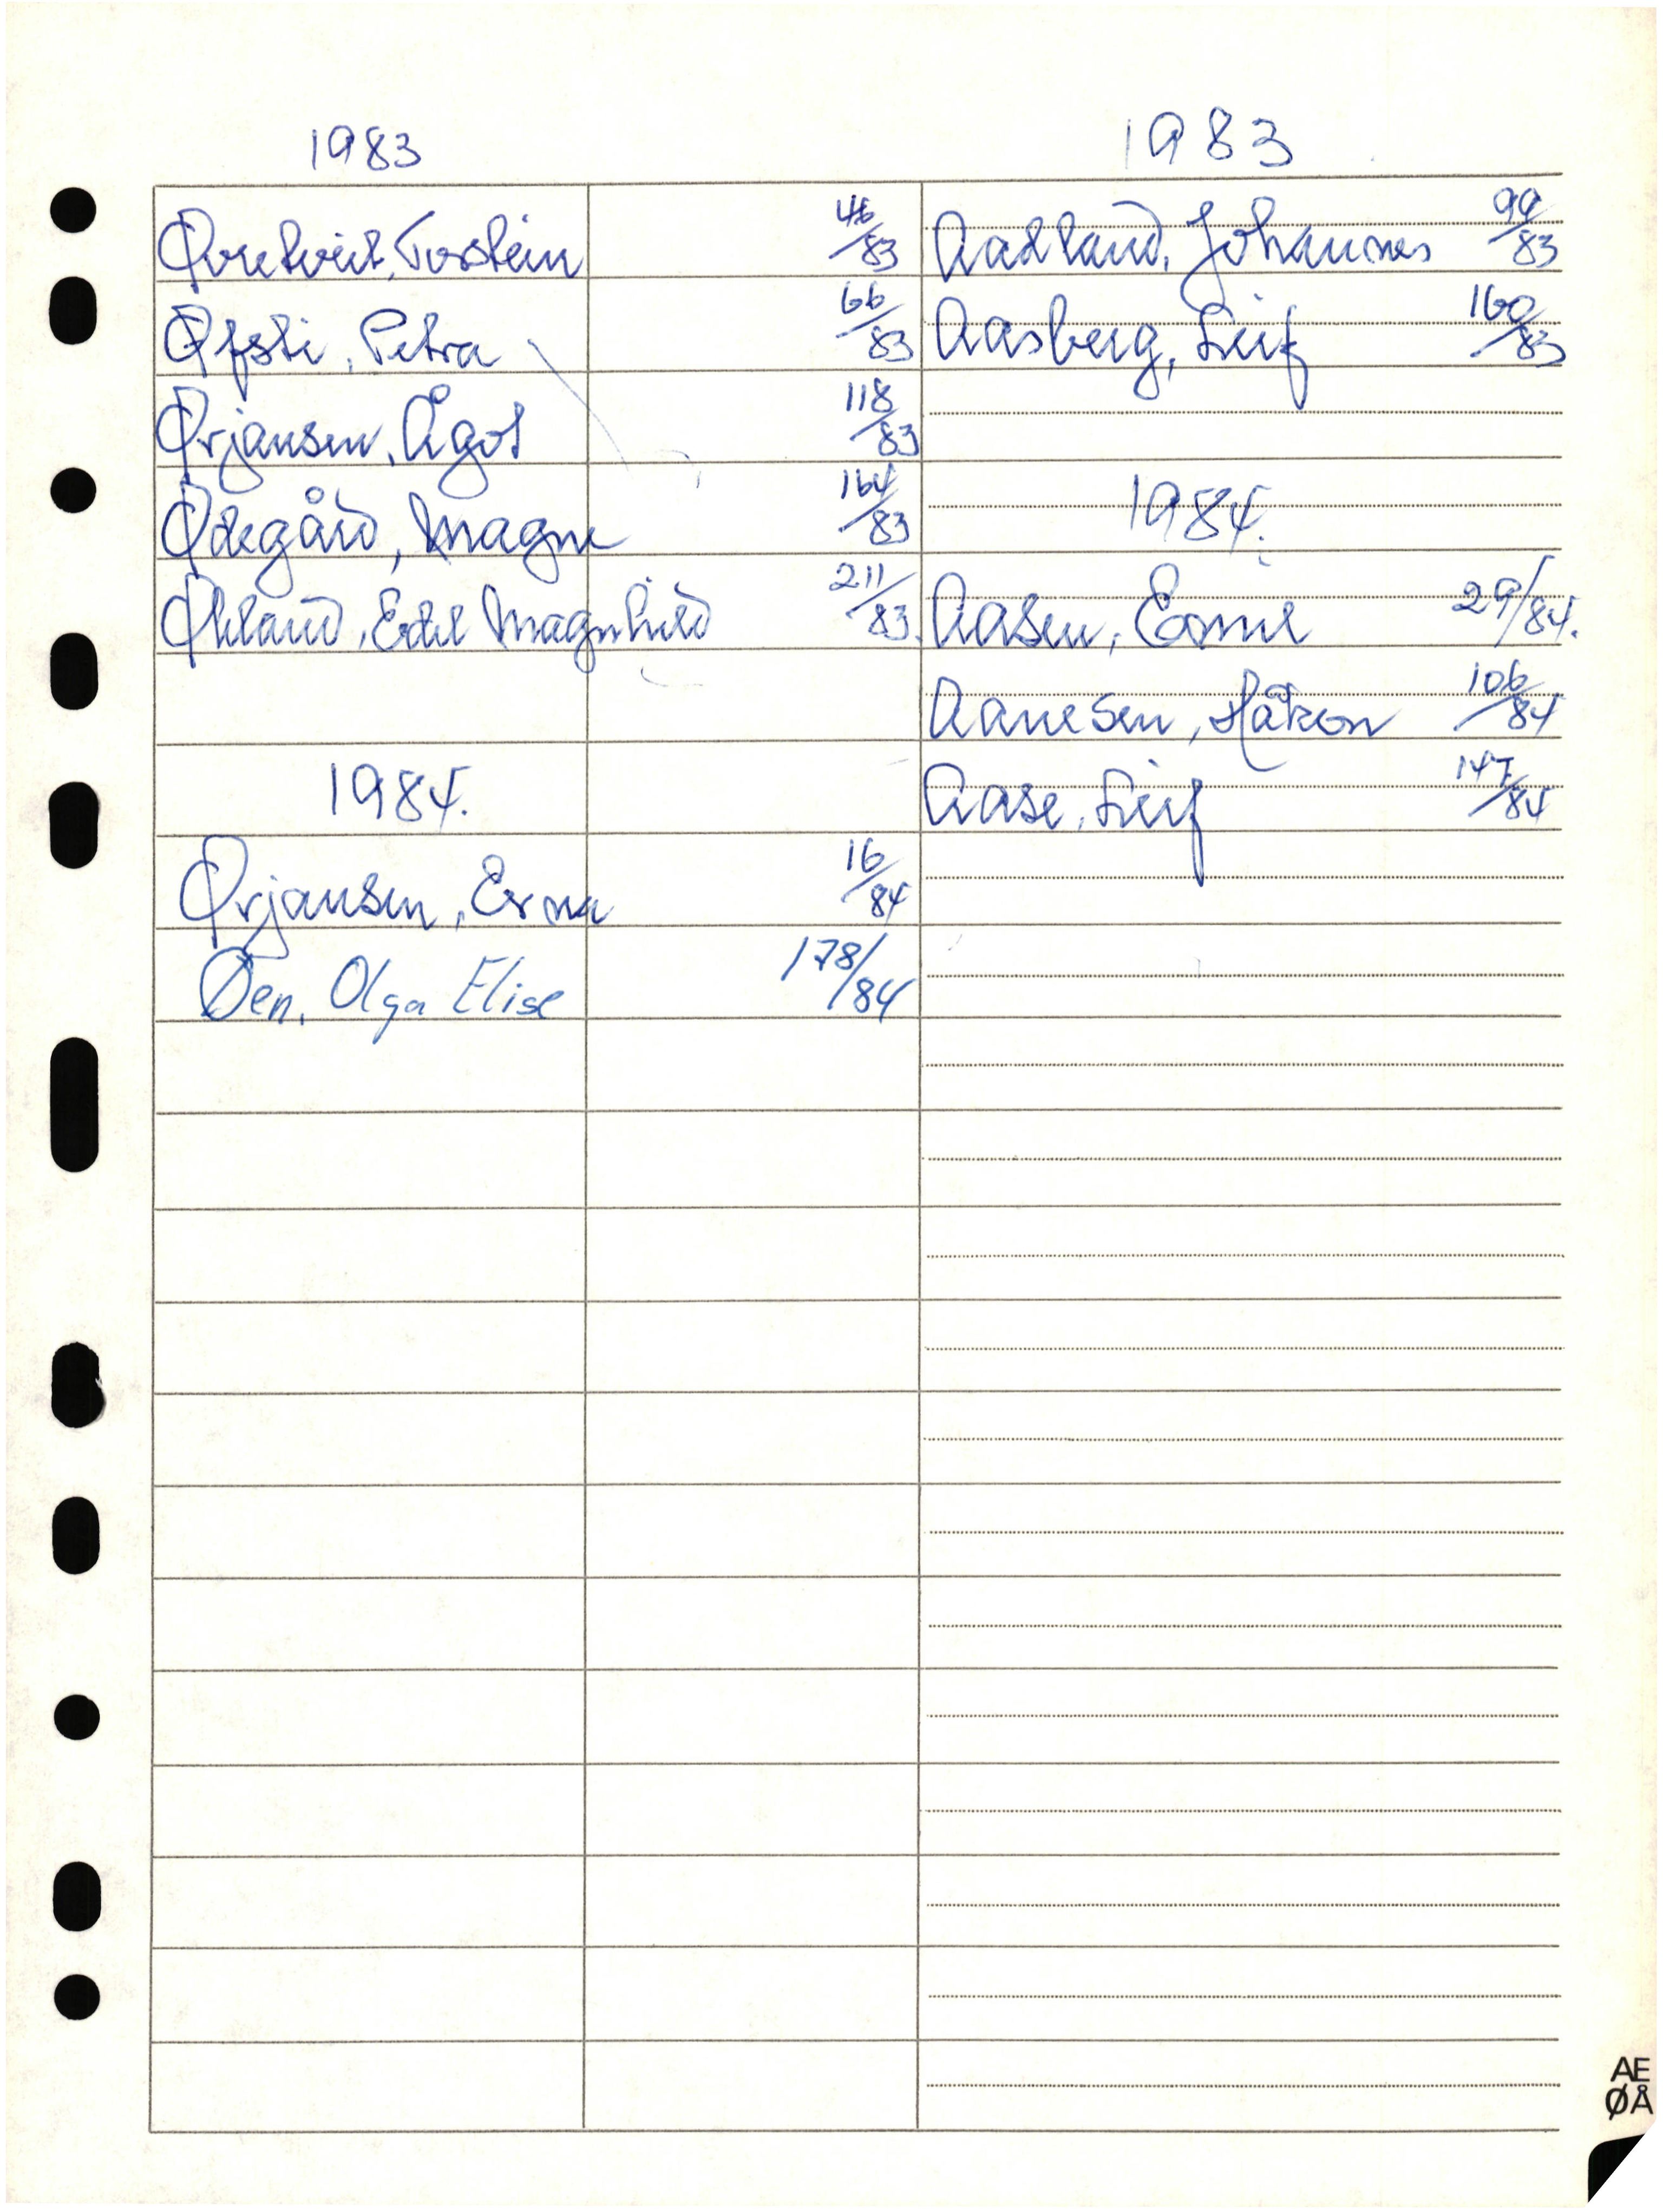 1983
Øvretveit, Torstein 46/83
Øfsti, Petra 66/83
Ørjansen, Ågot 118/83
Ødegård, Magne 164/83
Økland, Edel Magnhild 211/83.
1984.
Ørjansen, Erna 16/84
Øen, Olga Elise 178/84
1983
Aadland, Johannes 99/83
Aasberg, Leif 160/83
1984.
Aasen, Emil 29/84.
Aanesen, Håkon 106/84
Aase, Leif 147/84
AE
ØÅ